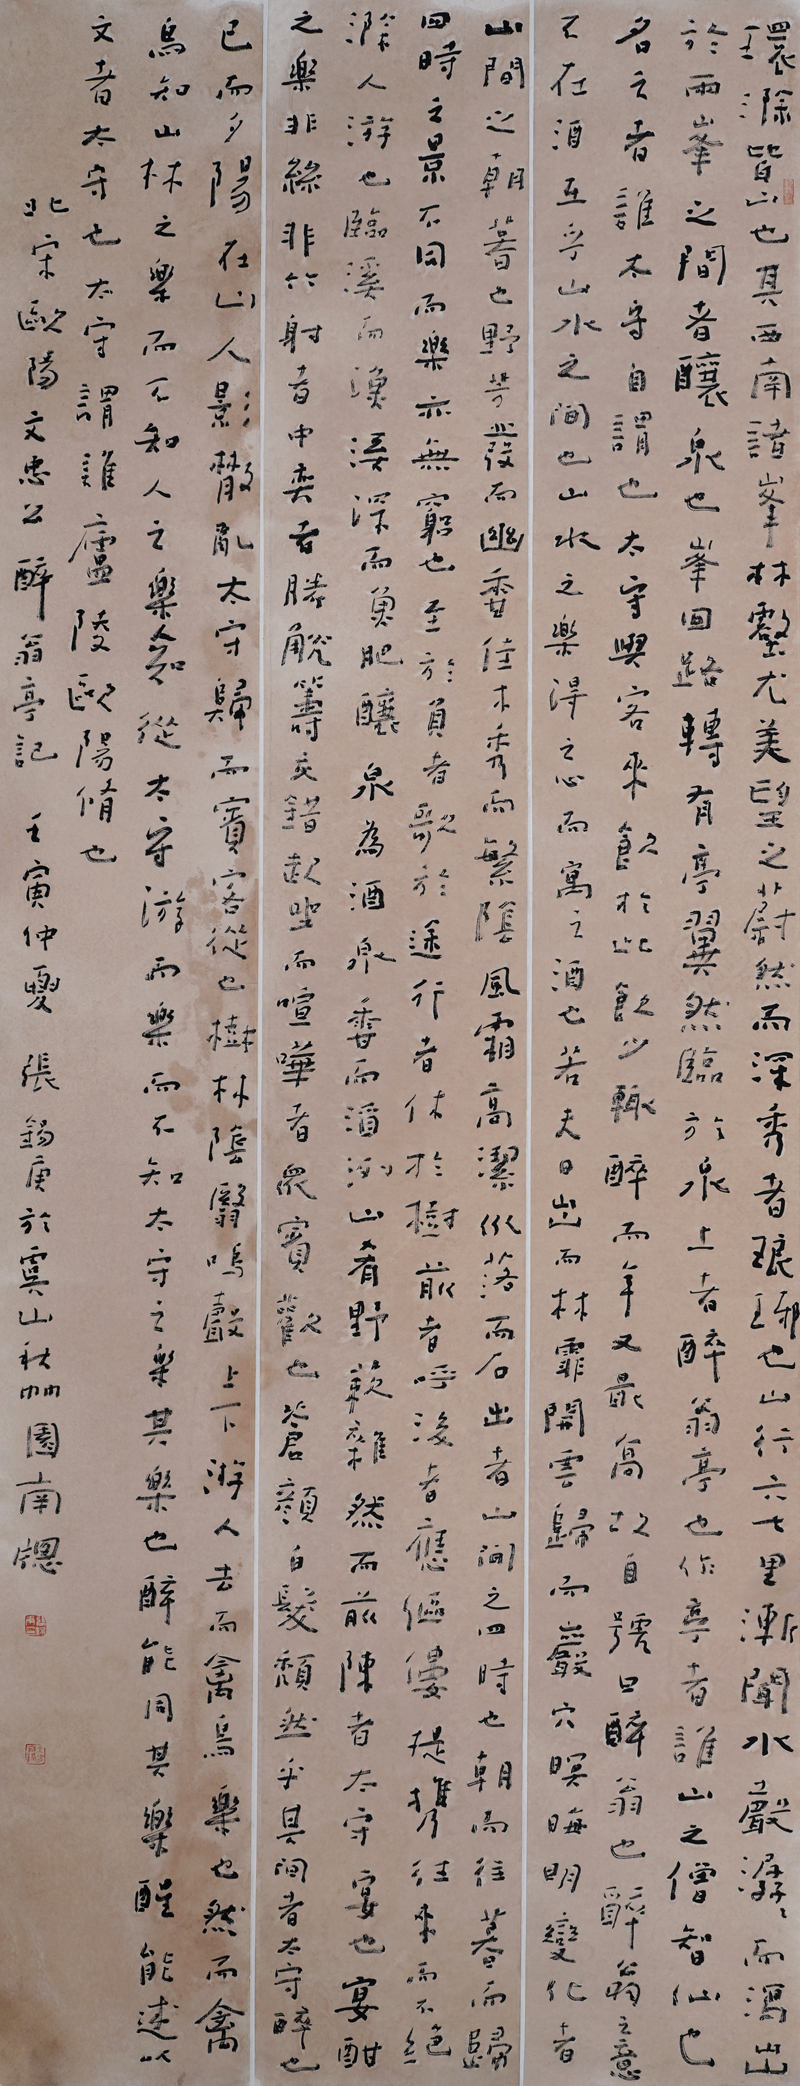 環滁皆山也其西南諸峯林壑尤美望之蔚然而深秀者琅琊也山行六七里漸聞水聲潺潺而瀉出
於兩峯之間者釀泉也峯回路轉有亭翼然臨於泉上者醉翁亭也作亭者誰山之僧智仙也
名之者誰太守自謂也太守與客來飲於此飲少輒醉而年又最高故自號曰醉翁也醉翁之意
不在酒在乎山水之間也山水之樂得之心而寓之酒也若夫日出而林霏開雲歸而巖穴暝晦明變化者
山間之朝暮也野芳發而幽香佳木秀而繁陰風霜高潔水落而石出者山間之四時也朝而往暮而歸
四時之景不同而樂亦無窮也至於負者歌於途行者休於樹前者呼後者應傴僂提攜往來而不絕
滁人游也臨溪而漁溪深而魚肥釀泉為酒泉香而酒洌山肴野蔌雜然而前陳者太守宴也宴酣
之樂非絲非竹射者中奕者勝觥籌交錯起坐而喧嘩者眾賓歡也蒼顏白髮頹然乎其間者太守醉也
已而夕陽在山人影散亂太守歸而賓客從也樹林陰翳鳴聲上下游人去而禽鳥樂也然而禽
鳥知山林之樂而不知人之樂人知從太守游而樂而不知太守之樂其樂也醉能同其樂醒能述以
文者太守也太守謂誰廬陵歐陽脩也
北宋歐陽文忠公醉翁亭記 壬寅仲夏 張錫庚於虞山秋韵園南窗